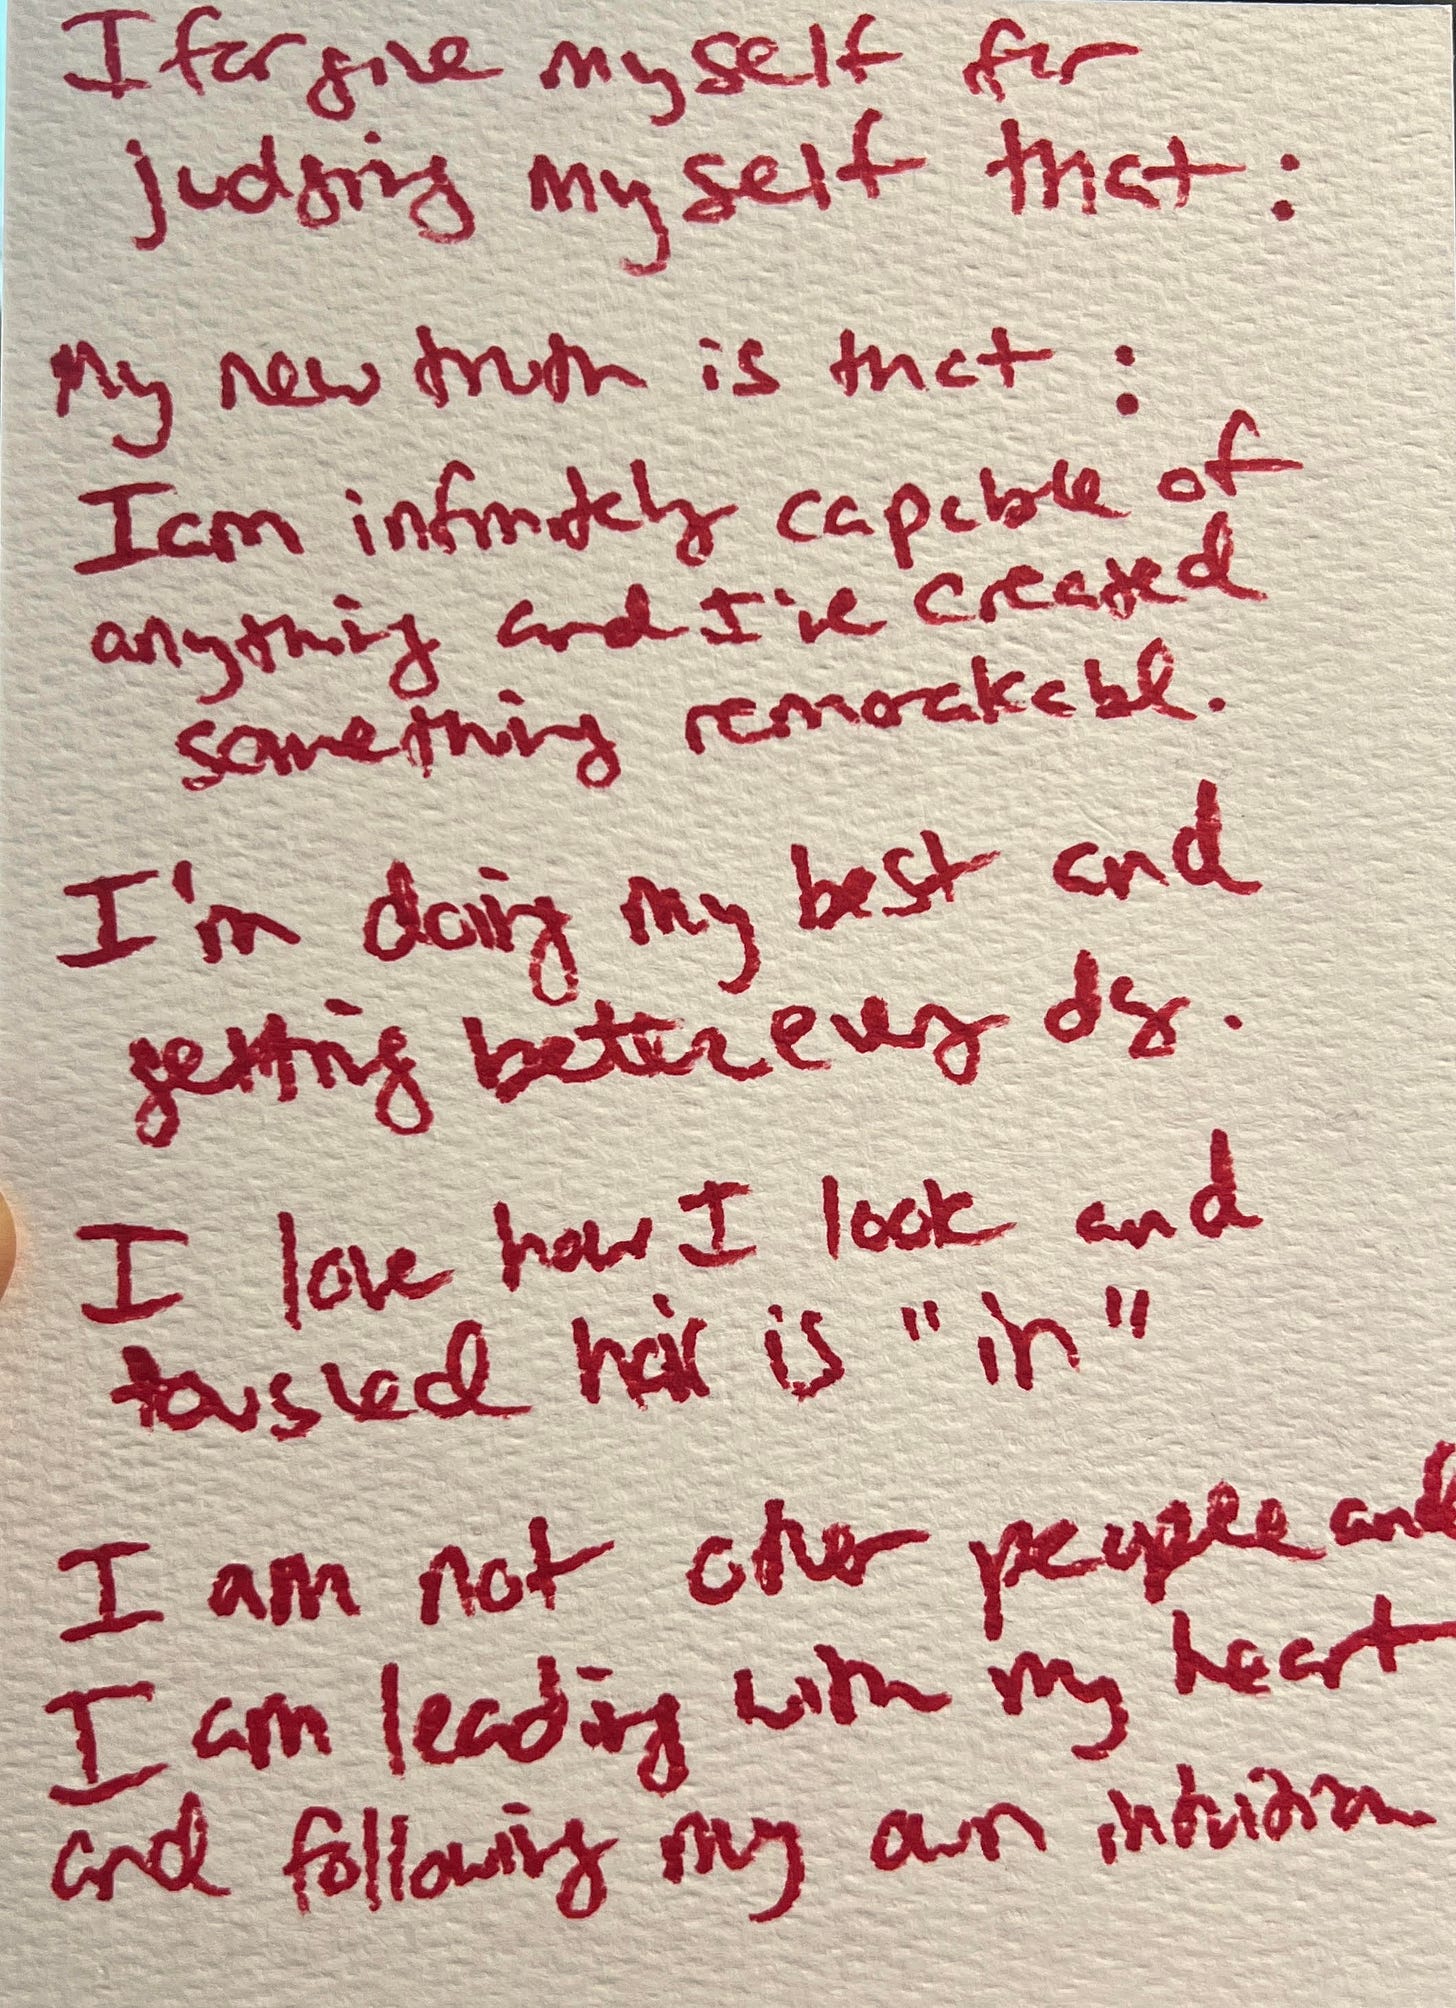 I forgive myself for
judging myself that:
My new truth is that:
I am infinitely capable of
anything and I've created
something remarkable.
I'm doing my best and
getting better every day.
I love how I look and
tousled hair is "in"
I am not other people and
I am leading with my heart
and following my own intuition